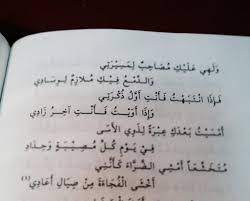 وَلَهِي عَلَيْكِ مُصَاحِبٌ لِمَسِيرَتِي
وَالدَّمْعُ فِيكِ مُلَازِمٌ لِوِسَادِي
فَإِذَا انْتَبَهْتُ فَأَنْتِ أَوَّلُ ذُكْرَتِي
وَإِذَا أَوَيْتُ فَأَنْتِ آخِرُ زَادِي
أَمْسَيْتُ بَعْدَكِ عِبْرَةً لِذَوِي الْأَسَى
فِي يَوْمِ كُلِّ مُصِيبَةٍ وَحِدَادِ
مُتَخَشِّعًا أَمْشِي الضَّرَاءَ كَأَنَّنِي
أَخْشَى الْفُجَاءَةَ مِنْ صِيَالِ أَعَادِي